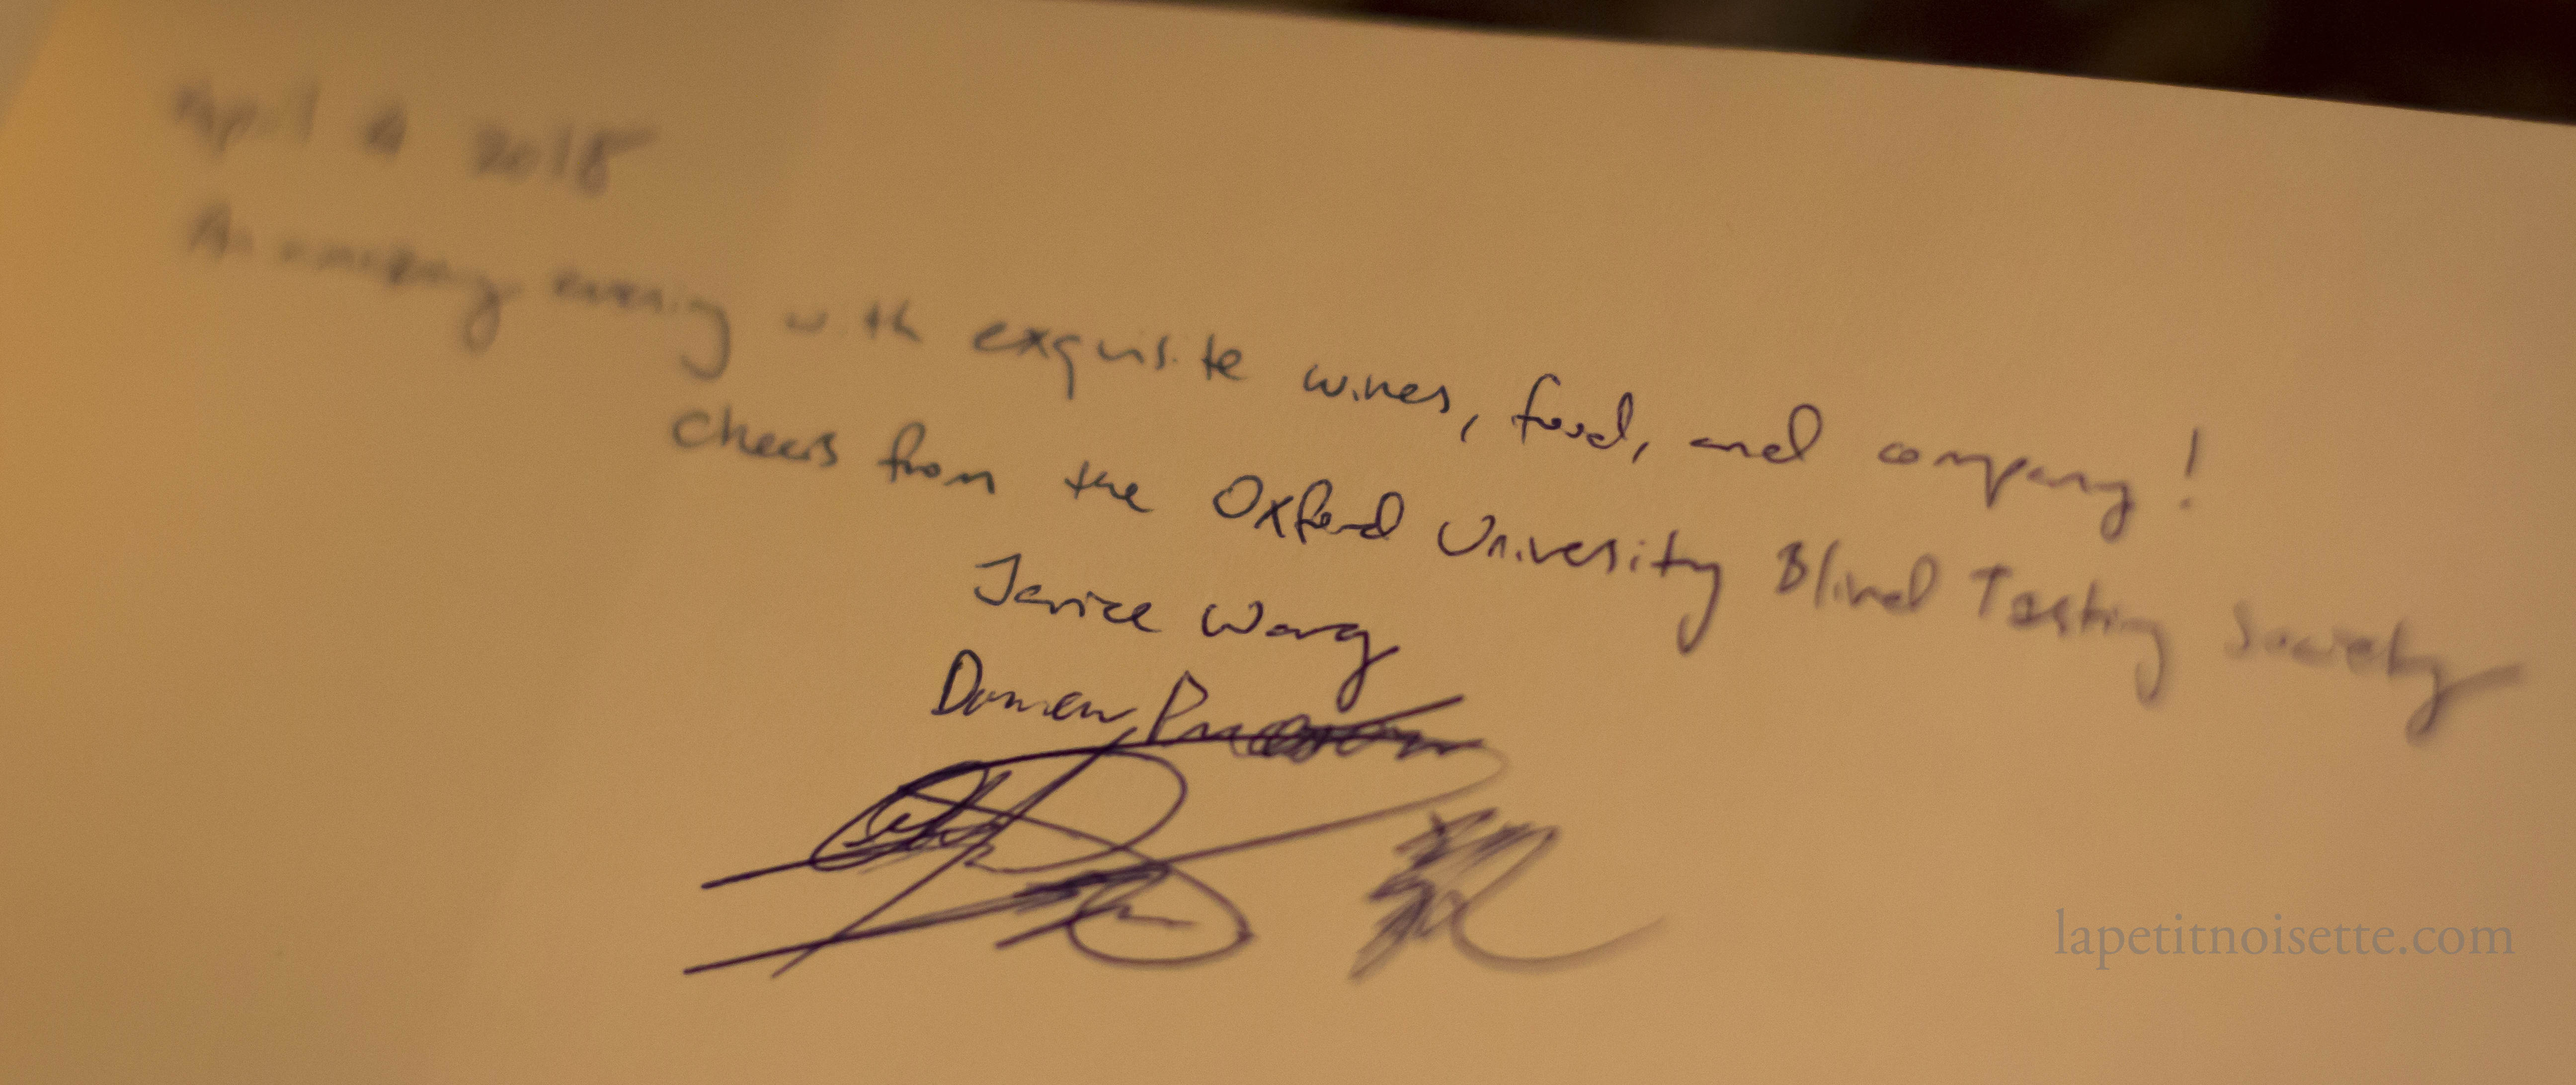 April 4 2018
An amazing evening with exquisite wines, food, and company!
Cheers from the Oxford University Blind Tasting Society
Janice Wang
Damien
lapetitnoisette.com